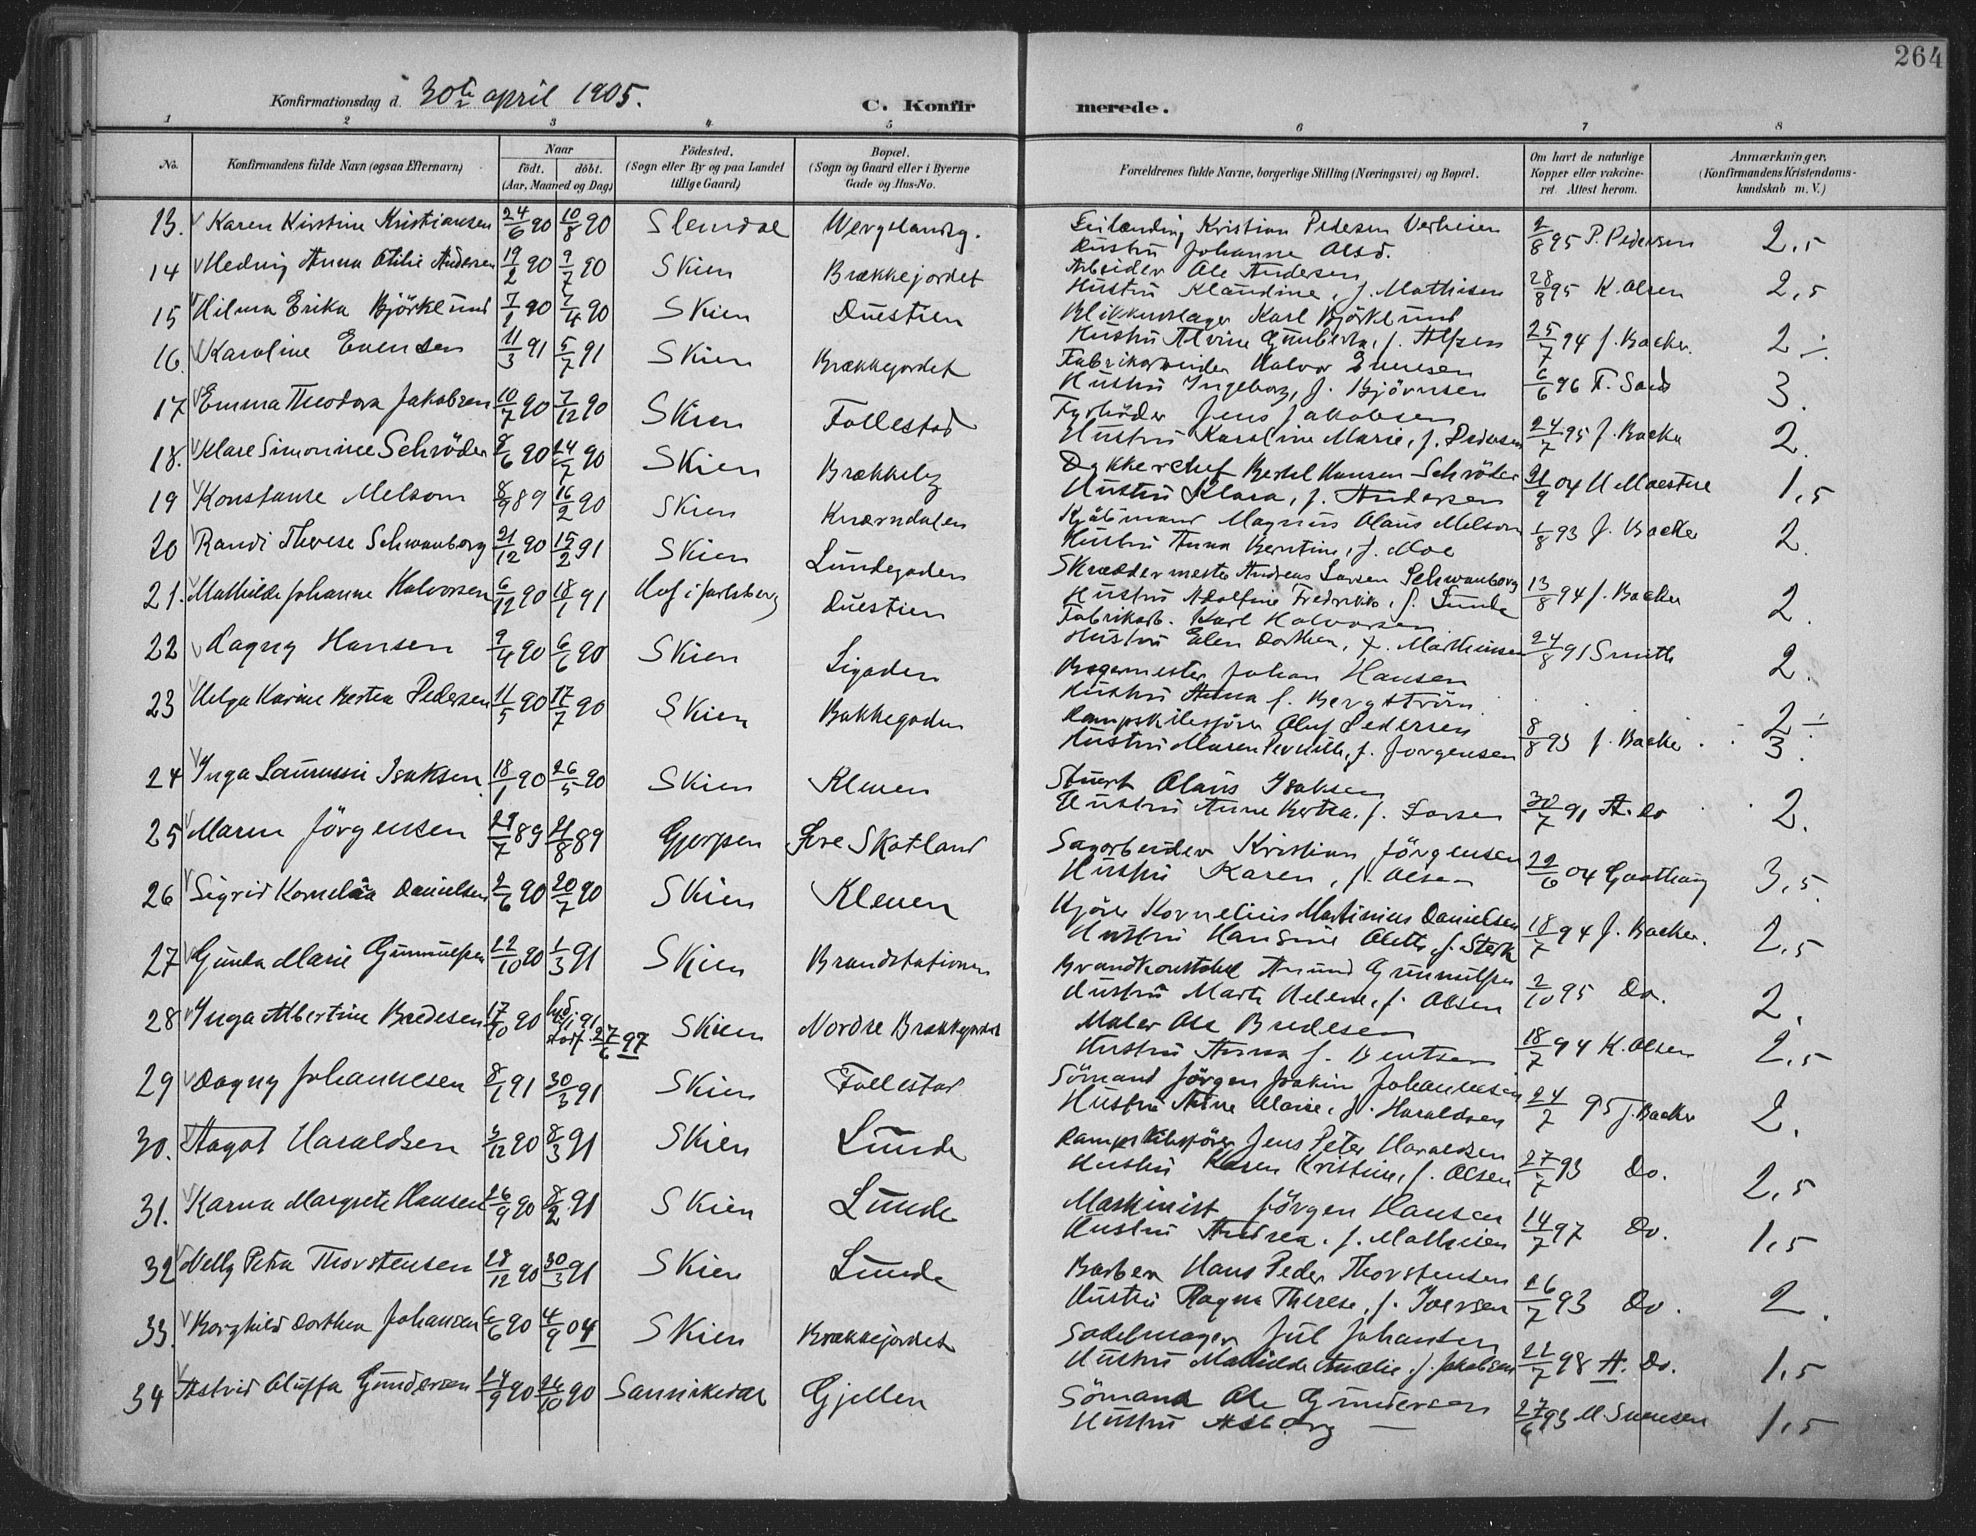 264
Konfirmationsdag d. 30te april 1905. C. Konfirmerede.
1 2 3 4 5 6 7 8
No. Konfirmandens fulde Navn (ogsaa Efternavn) Naar født. døbt. (Aar, Maaned og Dag) Födested. (Sogn eller By og paa Landet tillige Gaard) Bopæl. (Sogn og Gaard eller i Byerne Gade og Hus-No. Forældrenes fulde Navne, borgerlige Stilling (Næringsvei) og Bopæl. Om havt de naturlige Kopper eller vakcineret. Attest herom. Anmærkninger, (Konfirmandens Kristendomskundskab m. V.)
13. Karen Kirstine Kristiansen 24/6 90 10/8 90 Slemdal Wergelandsg. Kristian Pedersen Verheien 2/8 95 P. Pedersen 2,5
Hustru Johanne Olsd.
14 Hedvig Anna Otilie Andersen 19/2 90 9/7 90 Skien Brækkejordet Arbeider Ole Andersen 28/8 95 K. Olsen 2,5
Hustru Klaudine, f. Mathisen
15 Hilma Erika Björklund 7/1 90 7/4 90 Skien Duestien Blikkenslager Karl Björklund 25/7 94 J. Backer. 2 ÷
Hustru Alvine f.
16. Karoline Evensen 11/3 91 5/7 91 Skien Brækkejordet Fabrikarbeider Halvor Evensen 6/6 96 F. Sand 3.
Hustru Ingeborg, f. Björnsen
17 Emma Theodora Jakobsen 10/7 90 7/12 90 Skien Follestad Fyrböder Jens Jakobsen 24/7 95 J. Backer 2.
Hustru Karoline Marie, f. Pedersen
18. Klare Simonine Schröder 8/6 90 24/7 90 Skien Brækkeby Dykkerchef Bertel Hansen Schröder 21/9 04 1,5
Hustru Klara, f. Andersen
19 Konstanse Melsom 8/9 89 16/2 90 Skien Knærndalen Magnus Olaus Melsom 1/8 93 J. Backer 2.
Hustru Anna Berntine, f. Moe
20 Randi Therese Schwanborg 21/12 90 15/2 91 Skien Lundegaden Skræddermester Andreas Larsen Schwanborg 13/8 94 J. Backer 2.
Hustru Adolfine Fredrikke, f. Lunde
21. Mathilde Johanne Halvorsen 6/12 90 18/1 91 Hof i Jarlsberg Duestien Fabrikarb. Karl Halvorsen 24/8 91 Smith 2.
Hustru Elen Dorthea, f. Mathiesen
22 Dagny Hansen 9/4 90 6/6 90 Skien Ligaden Bagermester Johan Hansen 2 ÷
Hustru Anna f. Bergström
23 Helga Karine Bertea Pedersen 11/5 90 17/7 90 Skien Bakkegaden Dampskibsförer Oluf Pedersen 8/8 93 J. Backer 3.
Hustru Maren Pernille, f. Jørgensen
24 Inga Isaksen 18/1 90 26/5 90 Skien Kleven Stuert Olaus Isaksen 30/7 91 A. Do 2.
Hustru Anne Bertea. f. Larsen
25 Maren Jörgensen 29/7 89 21/8 89 Gjerpen Øvre Skotland Sagarbeider Kristian Jörgensen 22/6 04 3,5
Hustru Karen, f. Olsen
26 Sigrid Kornelia Danielsen 2/6 90 20/7 90 Skien Kleven Kjører Kornelius Martinius Danielsen 18/7 94 J. Backer. 2,5
Hustru Hansine Olette, f. Sterk
27 Gunda Marie 22/10 90 1/3 91 Skien Brandstationen Brandkonstabel Amund 2/10 95 Do. 2.
Hustru Marte Helene, f. Olsen
28 Inga Albertine Bredesen 17/10 90 91 27/6 97 Skien Nordre Brækkejordet Maler Ole Bredesen 18/7 94 K. Olsen 2,5
Hustru Anna f. Bentsen
29 Dagny Johannesen 8/1 91 30/3 91 Skien Follestad Sömand Jörgen Joakim Johannesen 24/7 95 J. Backer 2.
Hustru Anne Marie, f. Haraldsen
30. Aagot Haraldsen 3/12 90 8/3 91 Skien Lunde Dampskibsförer Jens Peter Haraldsen 27/7 93 Do. 2,5
Hustru Karen Kristine, f. Olsen
31. Karna Margrete Hansen 26/9 90 8/2 91 Skien Lunde Maskinist Jörgen Hansen 14/7 97 Do. 1,5
Hustru Andrea. f. Mathisen
32 Nelly Petra Thorstensen 28/12 90 30/3 91 Skien Lunde Barber Hans Peder Thorstensen 26/7 93 Do. 2.
Hustru Ragna Therese, f. Iversen
33. Borghild Dorthea Johansen 6/6 90 4/9 04 Skien Brækkejordet Sadelmager Jul Johansen 22/7 98 A. Do. 1,5
Hustru Mathilde Amalie f. Jakobsen
34 Astrid Oluffa Gundersen 24/9 90 26/10 90 Sannikedal Gjellen Sömand Ole Gundersen 27/6 93 M. Svensen 1,5
Hustru Asborg —